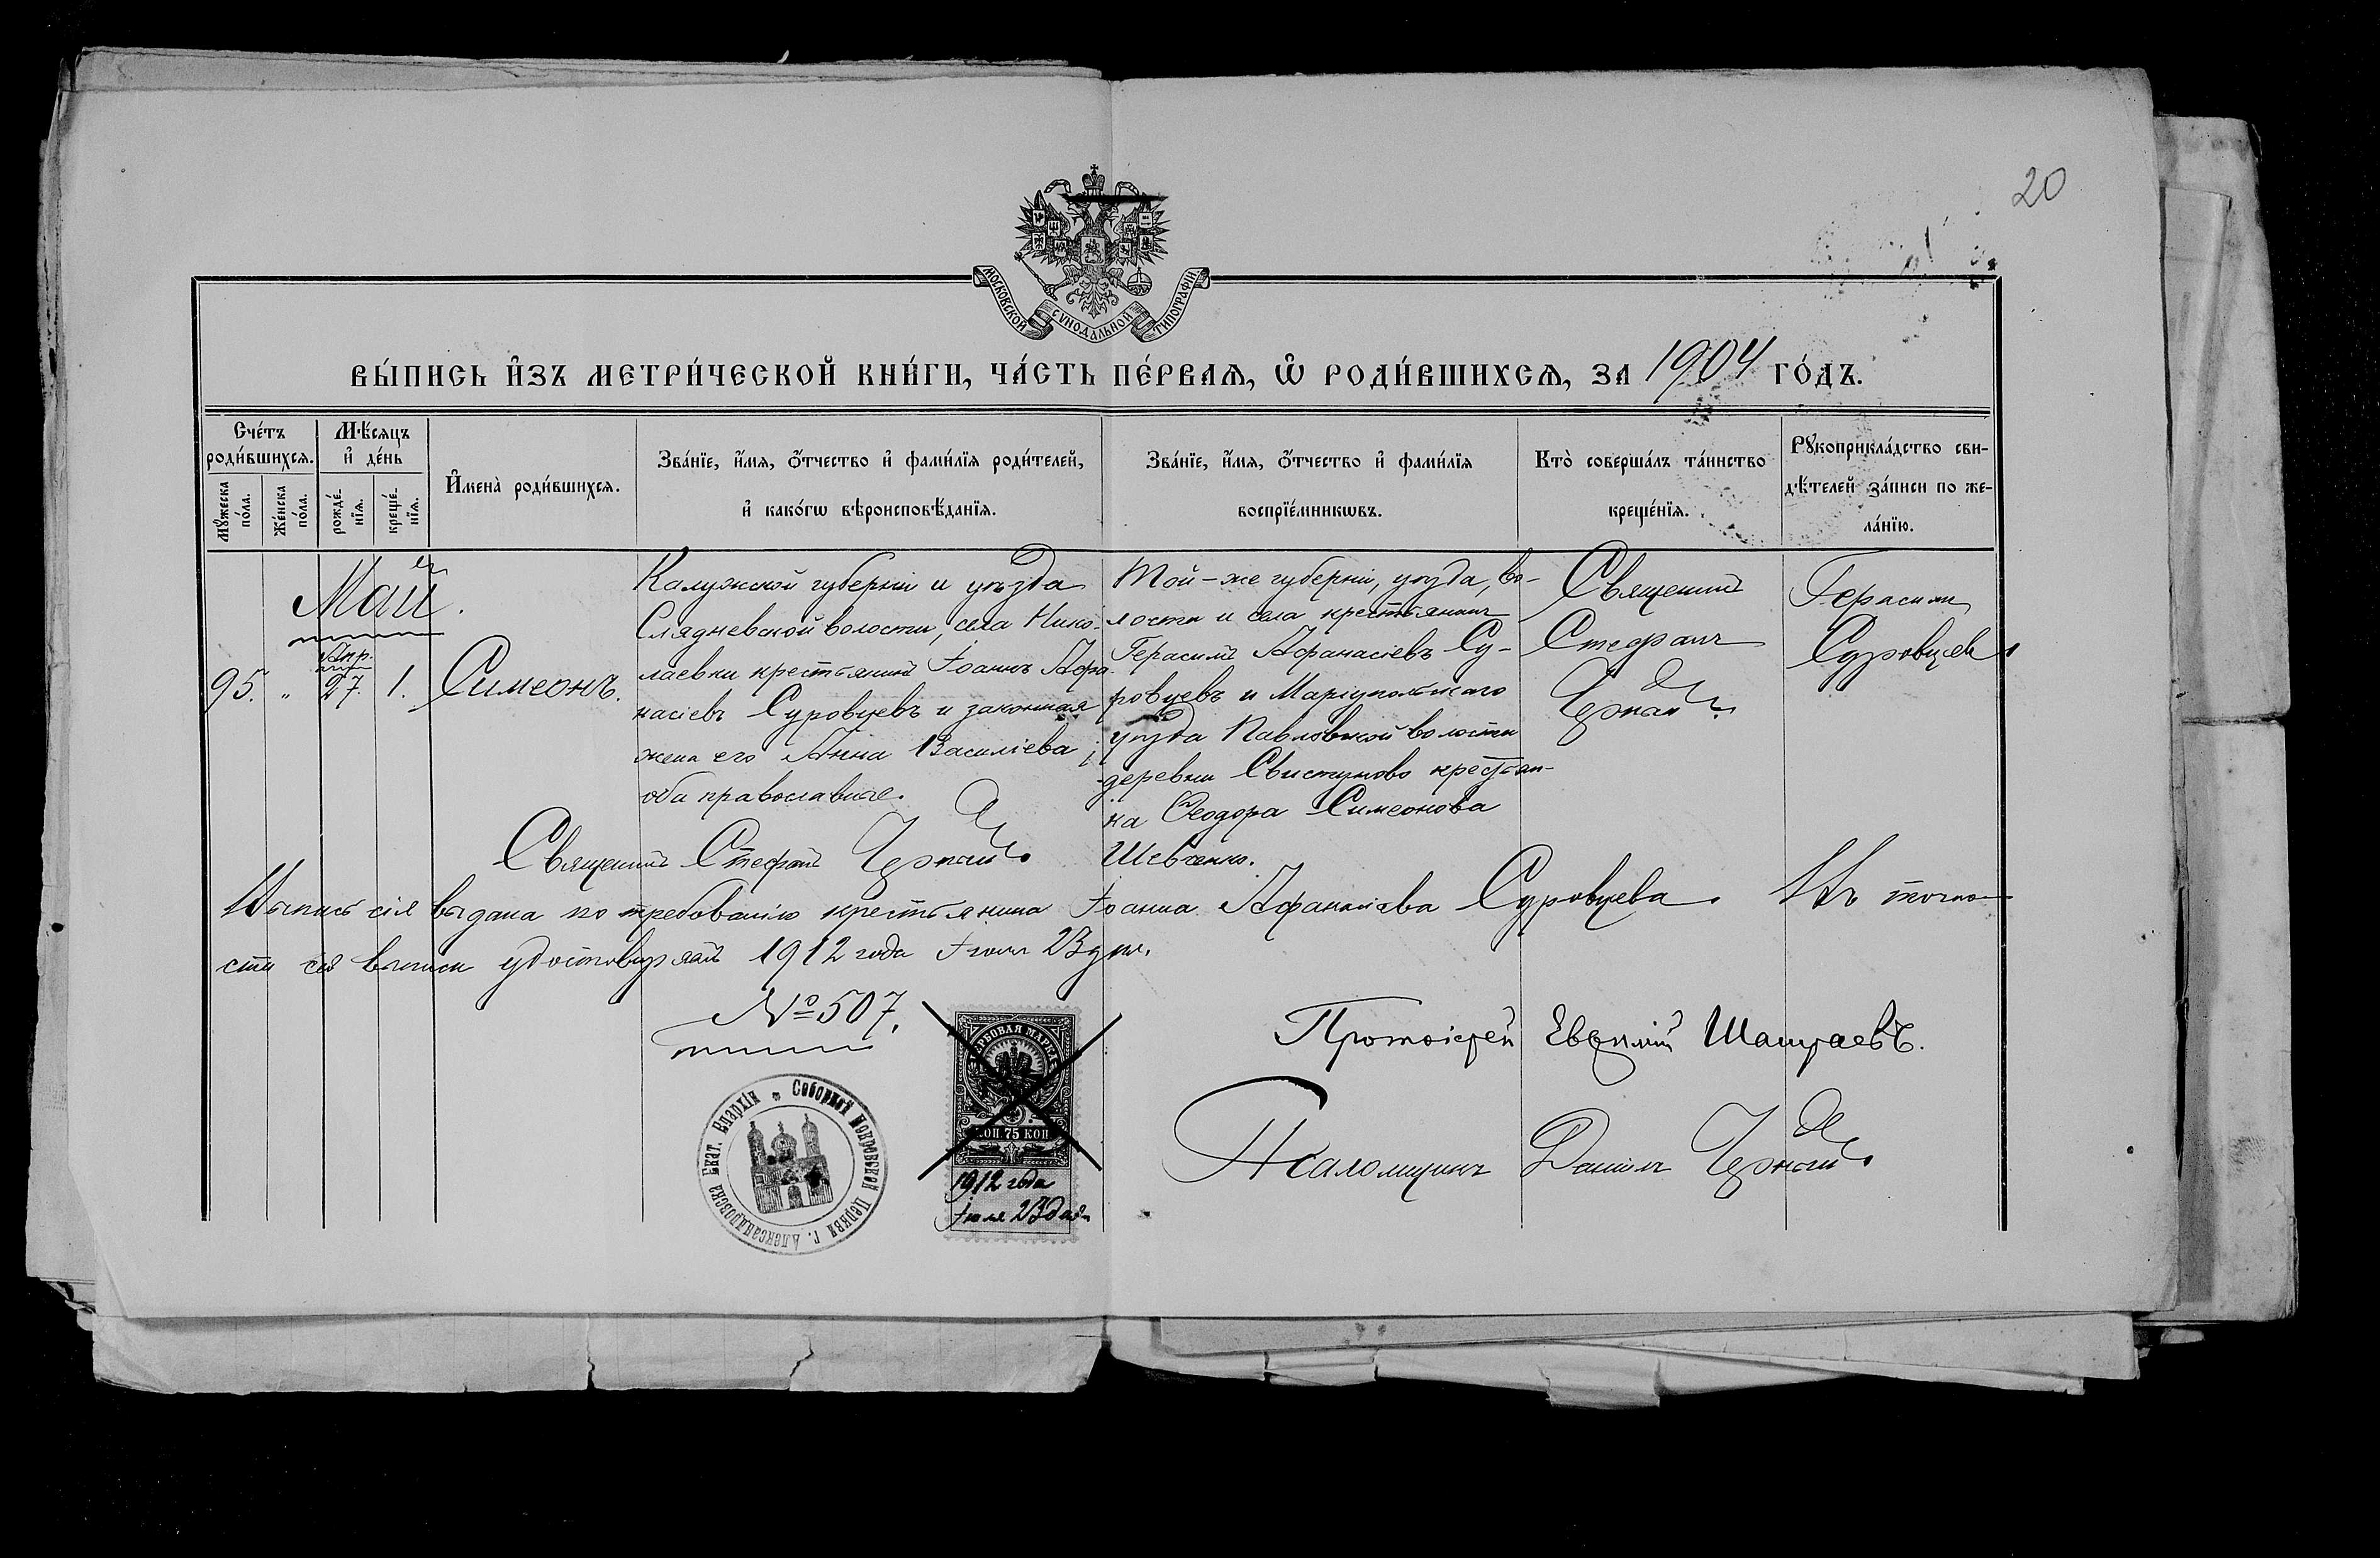 20
МОСКОВСКОЙ СѴНОДАЛЬНОЙ ТИПОГРАФІИ
ВЫ́ПИСЬ И҆ЗЪ МЕТРИ́ЧЕСКОЙ КНИ́ГИ, ЧА́СТЬ ПЕ́РВАѦ, Ѽ РОДИ́ВШИХСѦ, ЗА 1904 ГО́ДЪ.
Сче́тъ роди́вшихсѧ.
Мꙋ́жеска по́ла.
Же́нска по́ла.
Мѣ́сѧцъ и҆ де́нь
рожде́нїѧ.
креще́нїѧ.
И҆мена̀ роди́вшихсѧ.
Зва́нїе, и҆́мѧ, ѻ҆́тчество и҆ фами́лїѧ роди́телей,
и҆ како́гѡ вѣроисповѣ́данїѧ.
Зва́нїе, и҆́мѧ, ѻ҆́тчество и҆ фами́лїѧ
воспрїе́мникѡвъ.
Кто̀ соверша́лъ та́инство
креще́нїѧ.
Рꙋкоприкла́дство сви-
дѣ́телей за́писи по же-
ла́нїю.
Май
95. „ Апр. 27. 1. Симеонъ.
Калужской губерніи и уѣзда
Слядневской волости, села Нико-
лаевки крестьянинъ Іоаннъ Аѳа-
насіевъ Суровцевъ и законная
жена его Анна Василіева;
оба православные.
Той-же губерніи, уѣзда, во-
лости и села крестьянинъ
Герасимъ Аѳанасіевъ Су-
ровцевъ и Маріупольскаго
уѣзда Павловской волости
деревни Свистуново крестьян-
на Ѳеодора Симеонова
Шевченко.
Священникъ
Стефанъ
Чернай
Герасимъ
Суровцев
Священникъ Стефанъ Чернай
Выпись сія выдана по требованію крестьянина Іоанна Аѳанасіева Суровцева. Въ точно-
сти сей выписи удостовѣряемъ 1912 года Іюля 23 дня.
№ 507.
Протоіерей Евѳимій
Псаломщикъ Даніилъ Чернай
ГЕРБОВАЯ МАРКА
75 КОП.
1912 года
Іюля 23 дня
Соборной Покровской Церкви г. Александровска Екат. Епархіи